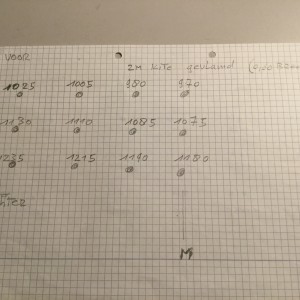 VOOR
2x kite gevland
1025 1005 980 970
1130 1110 1085 1075
1235 1215 1190 1180
M